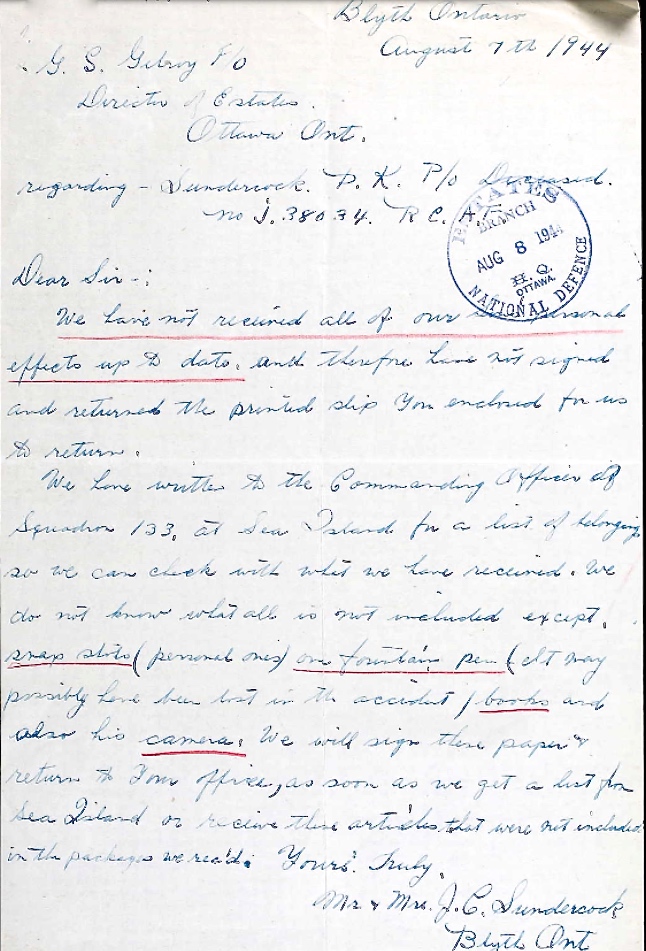 Blyth Ontario
August 7th 1944
G. S. Gilroy F/o
Director of Estates.
Ottawa Ont.
regarding - Sundercock. P. K. P/o Deceased.
no J. 38034. R C. A.
ESTATES
BRANCH
AUG 8 1944
H. Q.
OTTAWA.
NATIONAL DEFENCE
Dear Sir-:
We have not received all of our personal
effects up to date. and therefore have not signed
and returned the printed slip You enclosed for us
to return.
We have written to the Commanding Officer of
Squadron 133, at Sea Island for a list of belongings
so we can check with what we have received. We
do not know what all is not included except.
snap shots (personal ones) one fountain pen (It may
possibly have been lost in the accident) books and
also his camera. We will sign these paper &
return to Your office, as soon as we get a list from
Sea Island or receive these articles that were not included
in the packages we rec'd. Yours. Truly.
Mr & Mrs. J. C. Sundercock
Blyth Ont